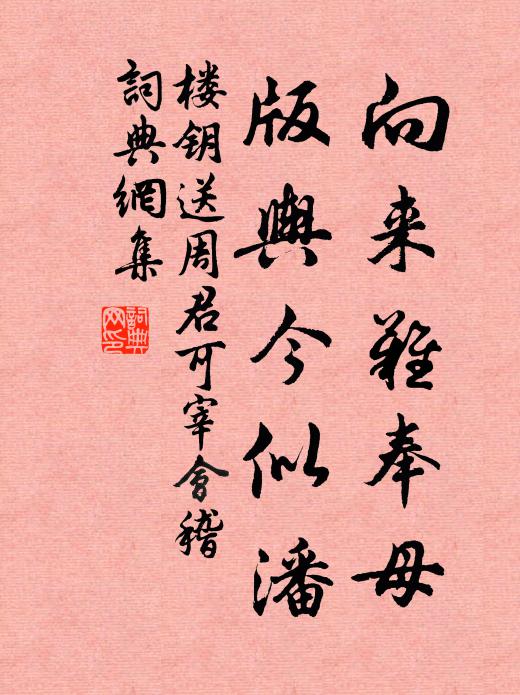 向来難奉母
版輿今似潘
楼钥送周君可宰會稽
詞典網集
詞典网印